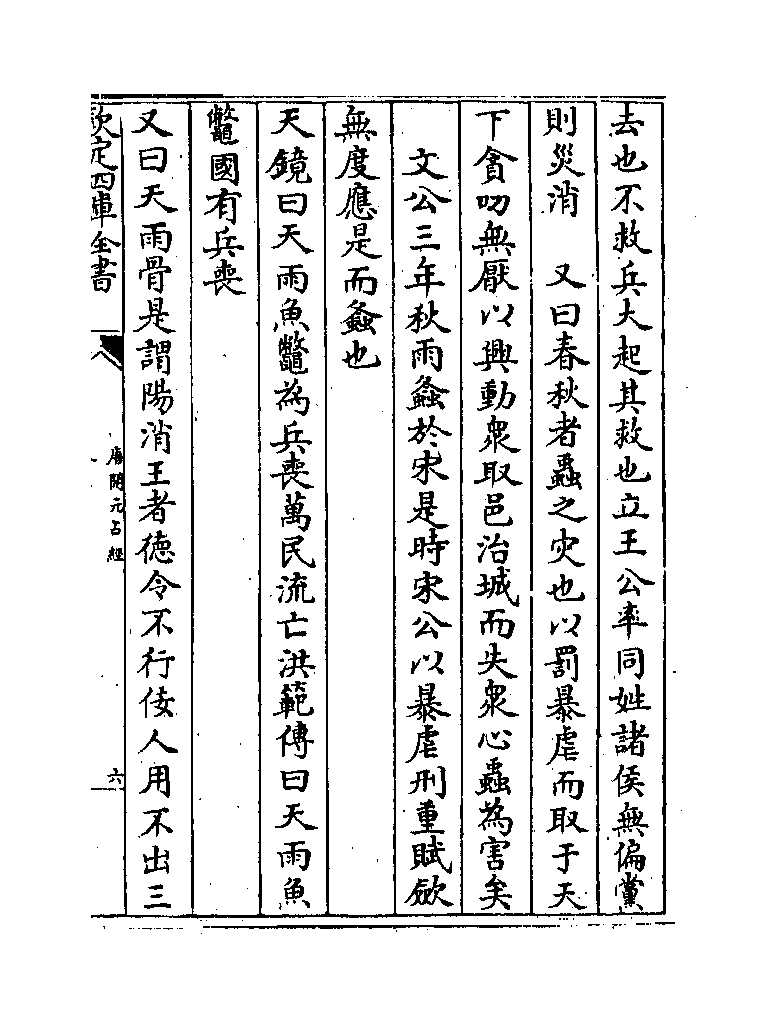 去也不救兵大起其救也立王公率同姓諸侯無偏黨
則災消　又曰春秋者蟲之灾也以罰暴虐而取于天
下貪叨無厭以興動衆取邑治城而失衆心蟲為害矣
文公三年秋雨螽於宋是時宋公以暴虐刑重賦斂
無度應是而螽也
天鏡曰天雨魚鼈為兵喪萬民流亡洪範傳曰天雨魚
鼈國有兵喪
又曰天雨骨是謂陽消王者德令不行佞人用不出三
欽定四庫全書
唐開元占經
六